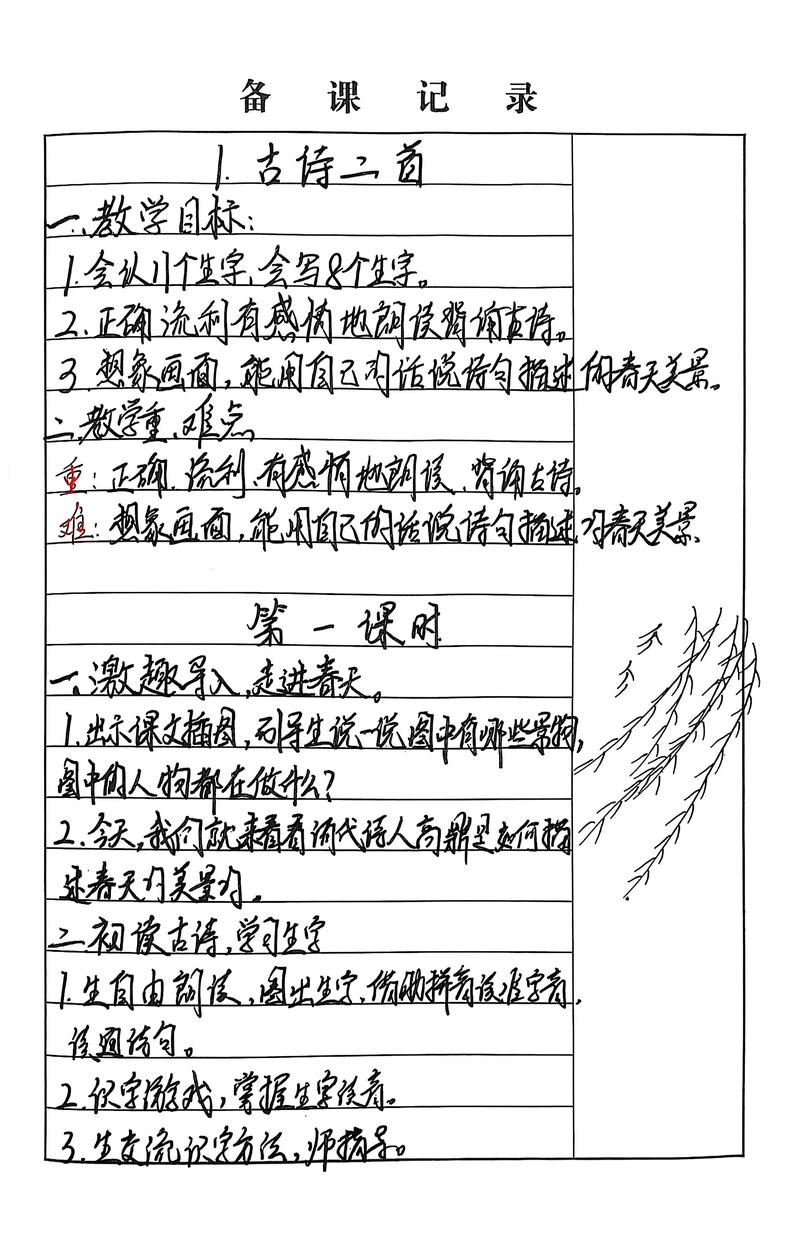 备课记录
1. 古诗二首
一、教学目标:
1. 会认11个生字,会写8个生字。
2. 正确流利有感情地朗读背诵古诗。
3. 想象画面,能用自己的话说诗句描述的春天美景。
二、教学重、难点
重:正确、流利、有感情地朗读、背诵古诗。
难:想象画面,能用自己的话说诗句描述的春天美景
第一课时
一、激趣导入,走进春天。
1. 出示课文插图,引导生说一说图中有哪些景物,
图中的人物都在做什么?
2. 今天,我们就来看看清代诗人高鼎是如何描
述春天的美景的。
二、初读古诗,学习生字
1. 生自由朗读,圈出生字,借助拼音读准字音,
读通诗句。
2. 识字游戏,掌握生字读音。
3. 生交流识字方法,师指导。